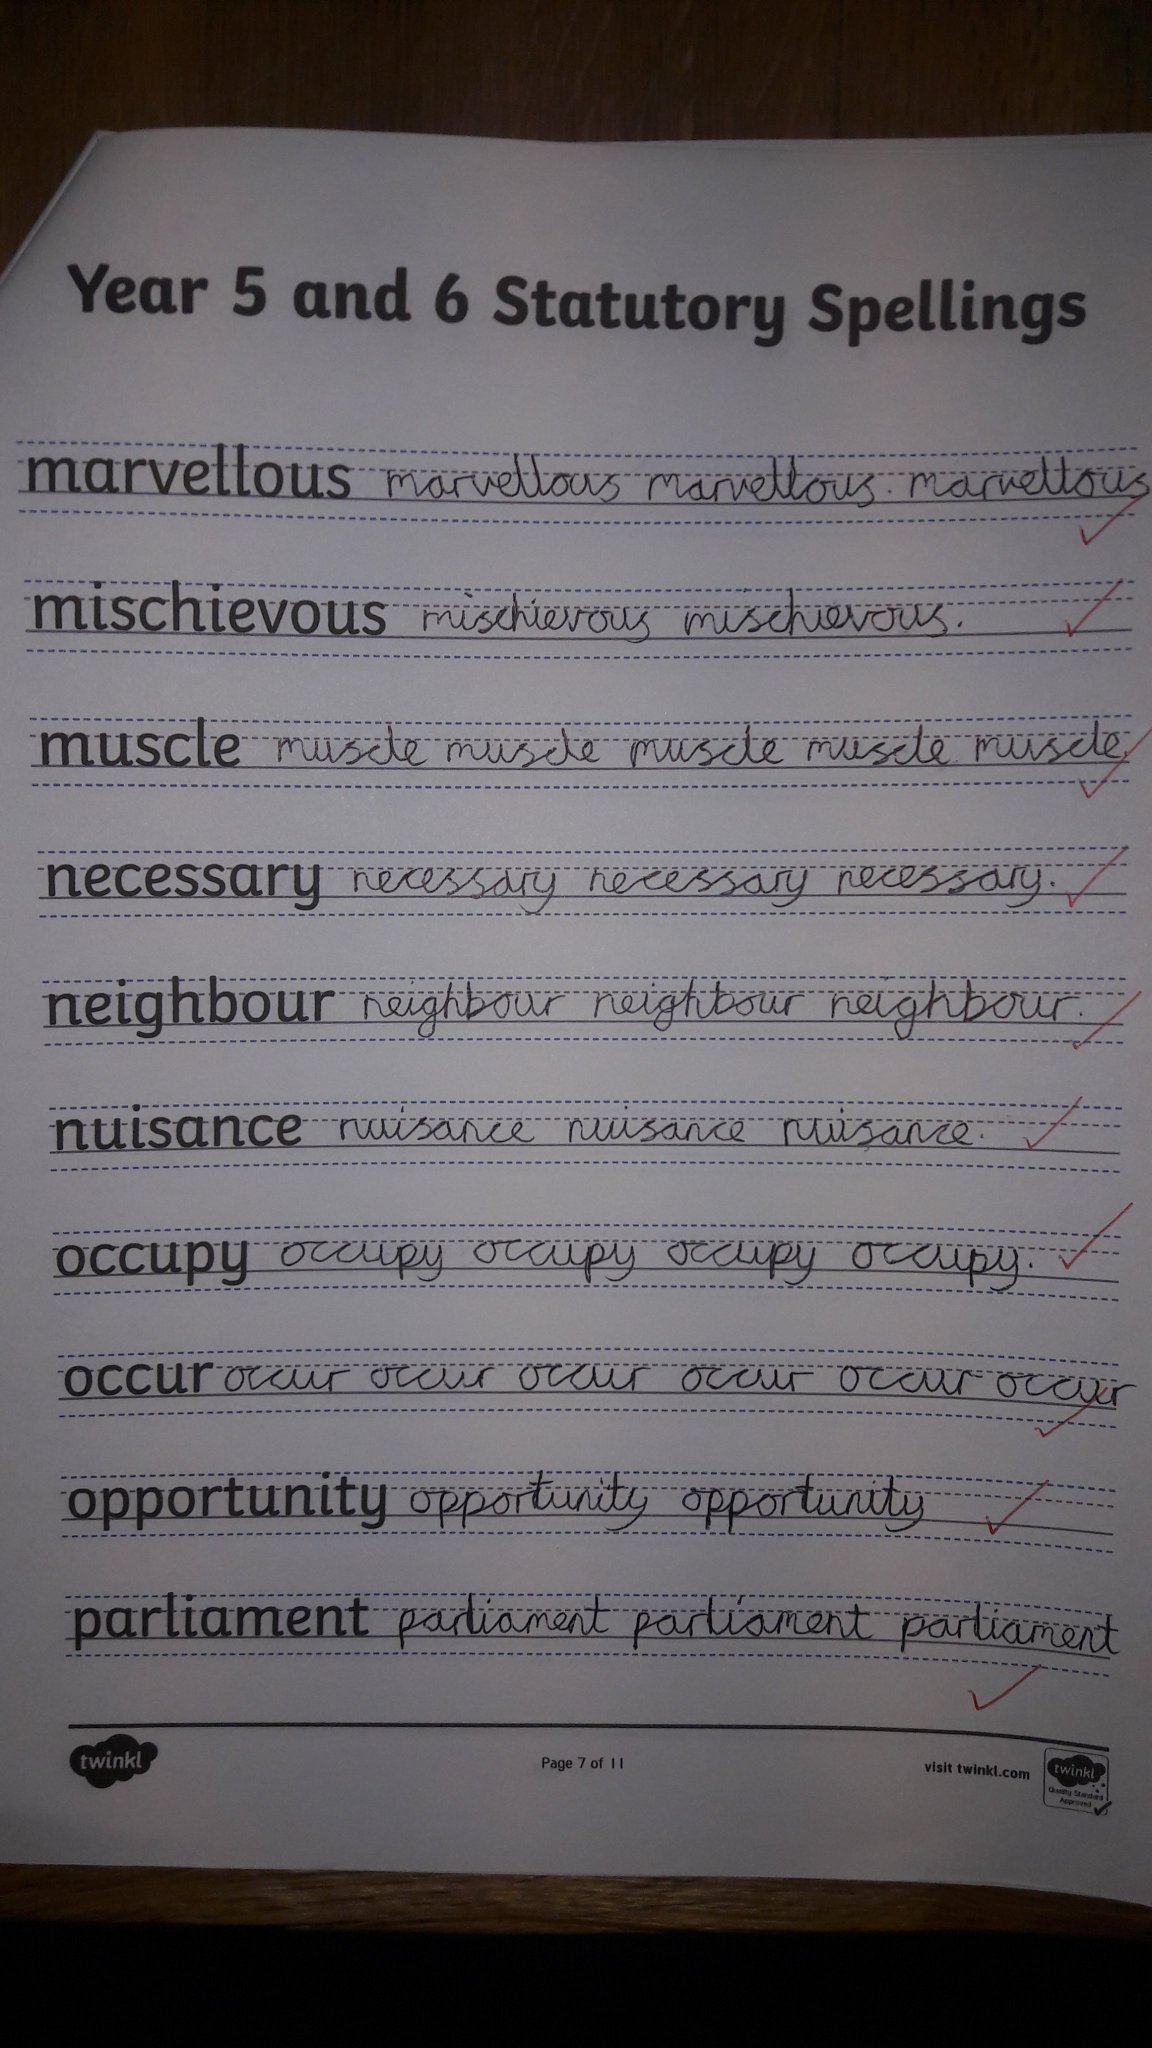 Year 5 and 6 Statutory Spellings
marvellous marvellous marvellous. marvellous
mischievous mischievous mischievous.
muscle muscle muscle muscle muscle muscle.
necessary necessary necessary necessary.
neighbour neighbour neighbour neighbour.
nuisance nuisance nuisance nuisance.
occupy occupy occupy occupy occupy.
occur occur occur occur occur occur occur
opportunity opportunity opportunity
parliament parliament parliament parliament
twinkl Page 7 of 11 visit twinkl.com twinkl
Quality Standard
Approved